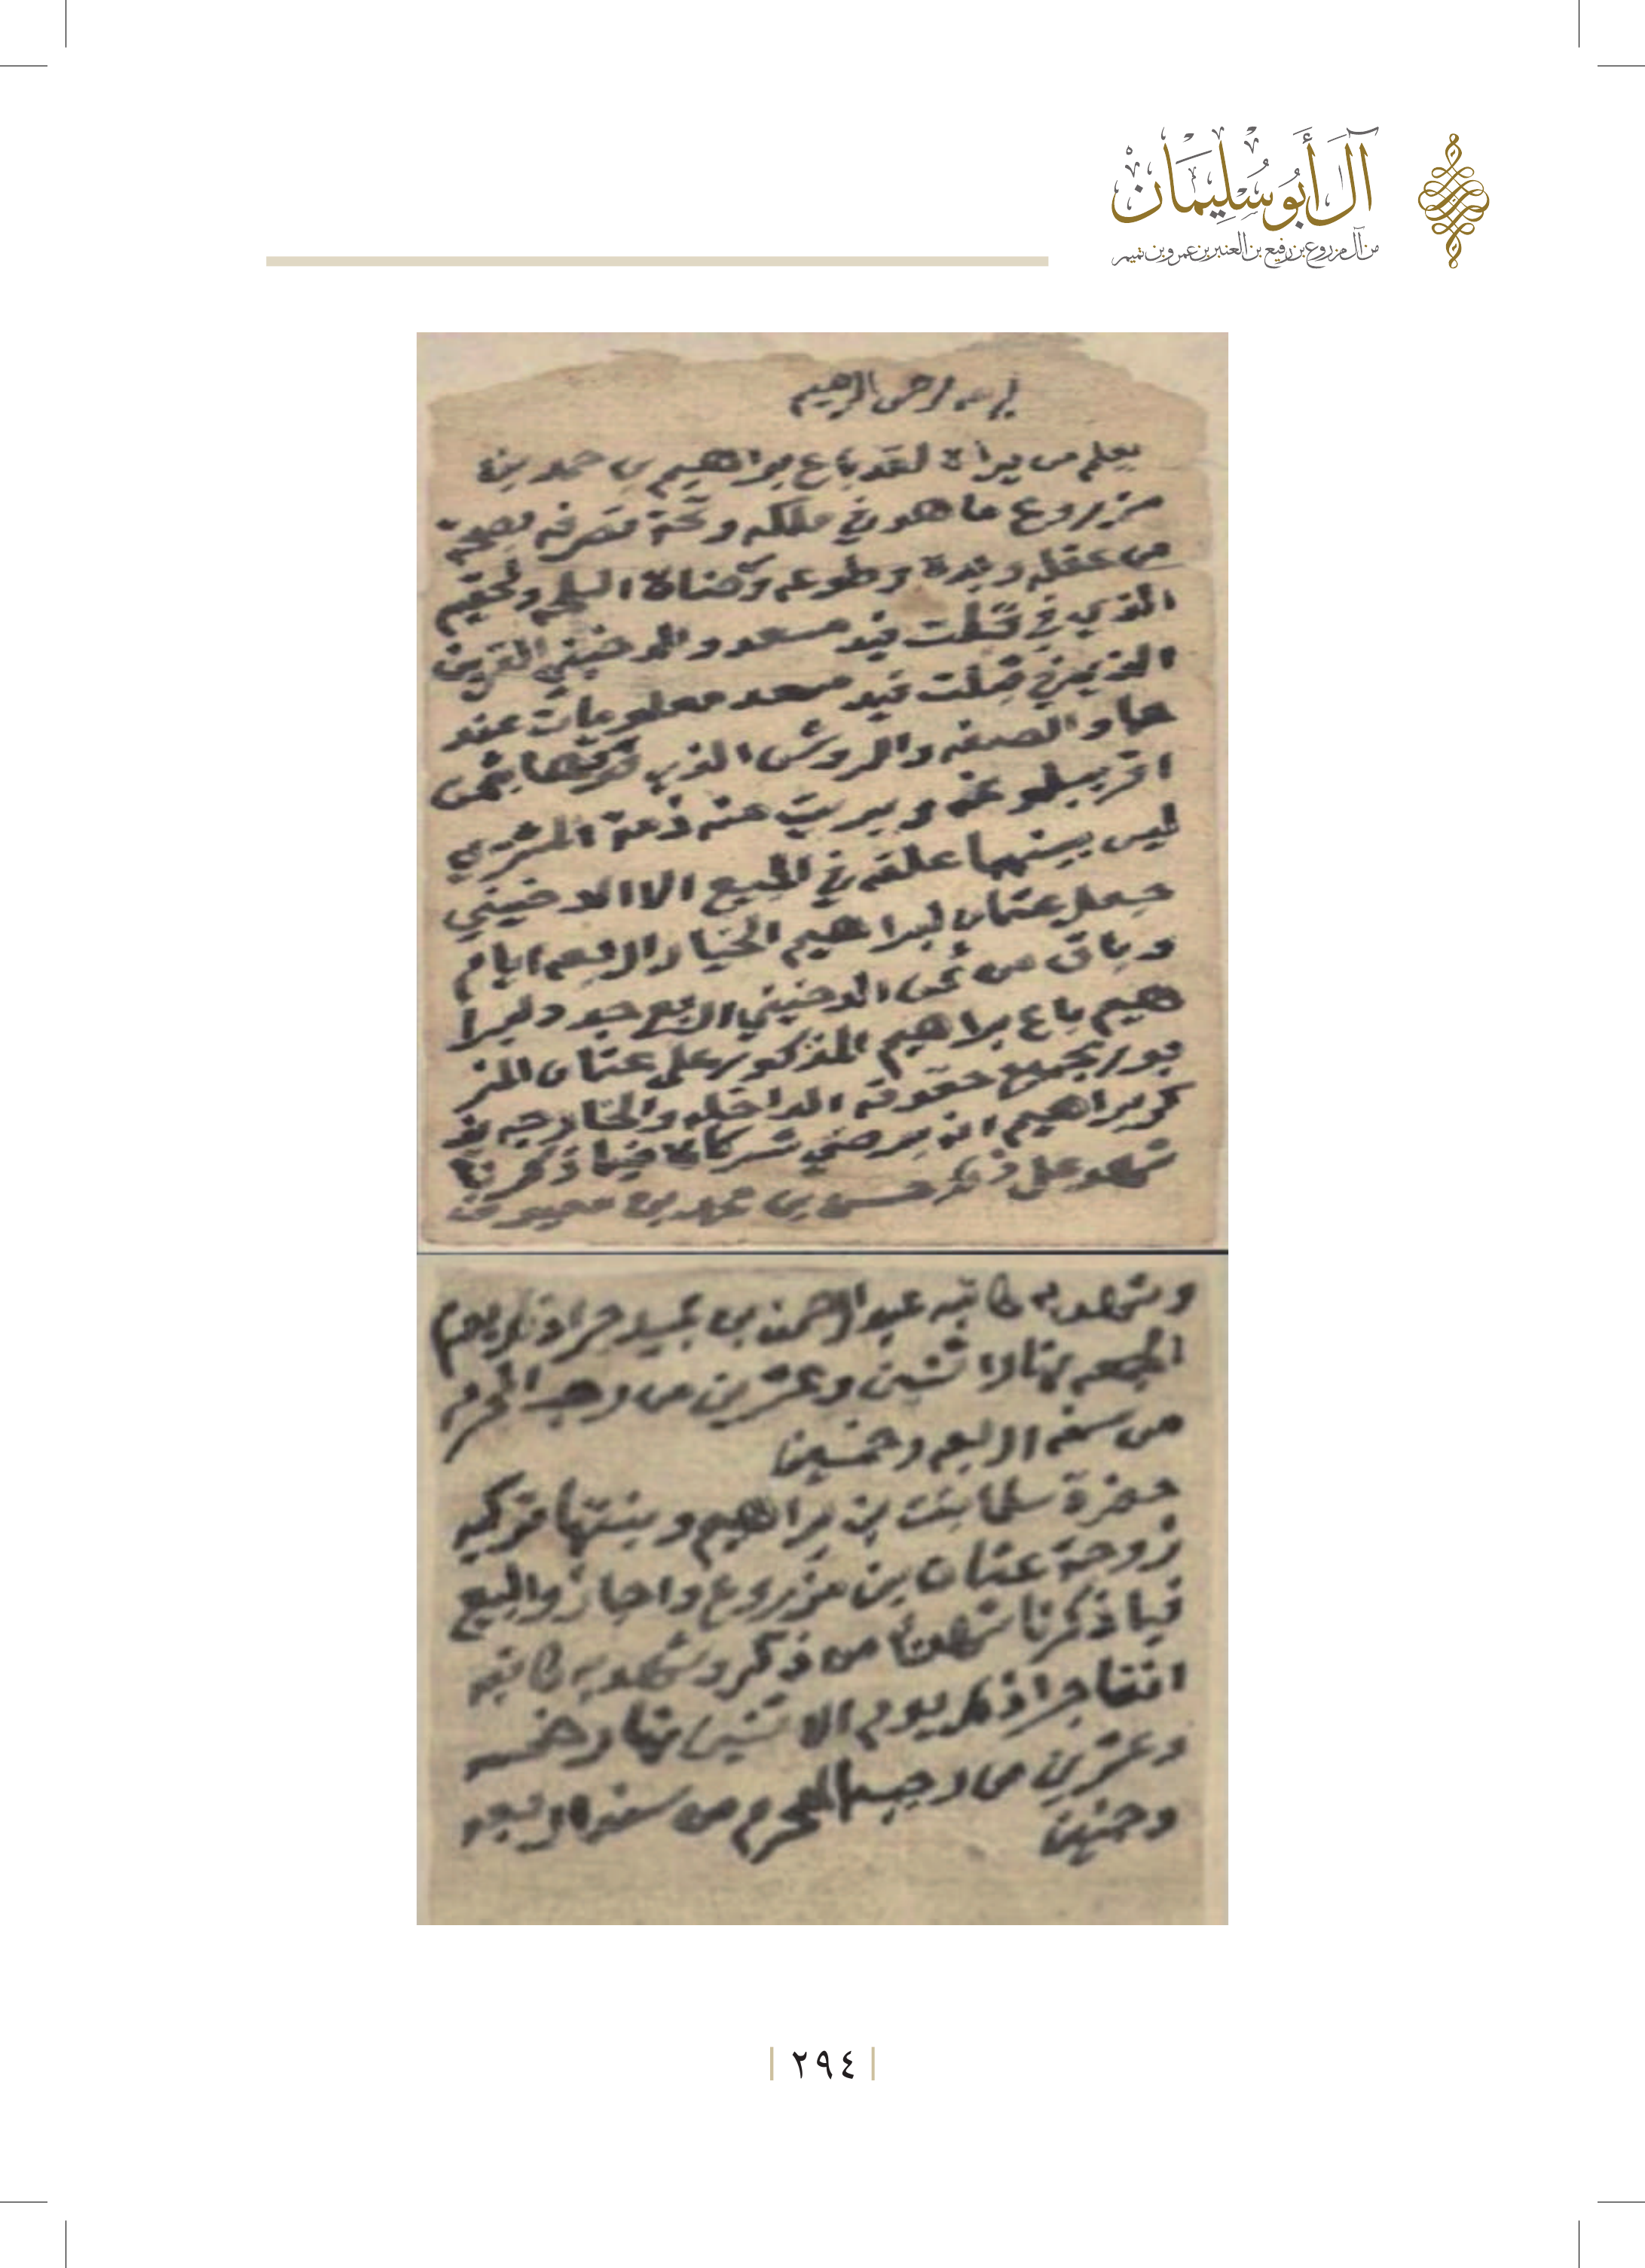 آل أبو سليمان
من آل مزروع بن رفيع بن العنبر بن عمرو بن تميم
بسم الله الرحمن الرحيم
يعلم من يراه لقد باع براهيم بن حمد بن
مزروع ما هو في ملكه وتحة تصرفه بصحة
من عقله وبدنه وطوعه ورضاة
الذي في قبلت فيد مسعد و الدخيني
الذي في قبلت فيد مسعد معلومات عند
هما و الصفه والروشن الذي فوقها بثمن
اقر ببلوغه وبريت منه ذمة المشتري
ليس بينهما علقه في المبيع الا الدخيني
جعل عثمان لبراهيم الخيار اربعه ايام
وباق من ثمن الدخيني اربع جدد لبرا
هيم باع براهيم المذكور على عثمان المز
بور بجميع حقوقه الداخله والخارجه
كر براهيم انه برضي شركائه فيما ذكرنا
شهد على ذلك حسن بن محمد بن
وشهد به كاتبه عبد الرحمن بن جرا ذلك يوم
الجمعه نهار اثنين وعشرين من رجب المحرم
من سنه اربعه وخمسين
حضرة سلما بنت بن براهيم وبنتها تركيه
زوجة عثمان بن مزروع واجازوا البيع
فيما ذكرنا شهد من ذكر وشهد به كاتبه
انفا جرا ذلك يوم الاثنين نهار خمسه
وعشرين من رجب المحرم من سنه اربعه
وخمسين
٢٩٤